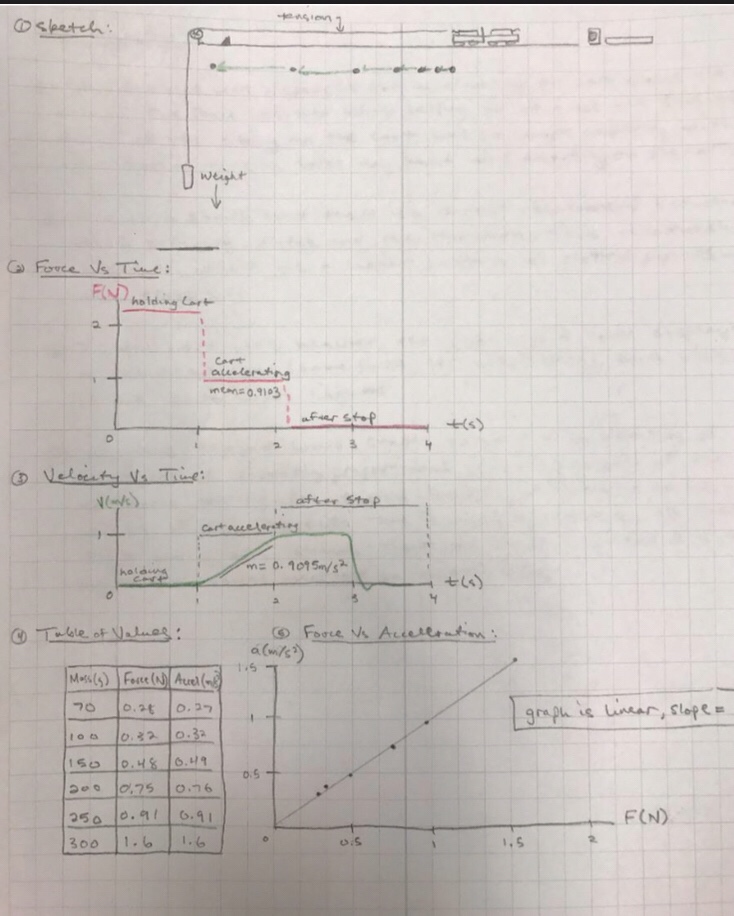 ① Sketch:
tension
Weight
② Force Vs Time:
F(N)
holding Cart
2
cart
accelerating
1
mean=0.9103
after stop
t(s)
0 1 2 3 4
③ Velocity Vs Time:
V(m/s)
after stop
1
Cart accelerating
holding
cart
m= 0.9095m/s²
t(s)
0 1 2 3 4
④ Table of Values:
Mass(g) Force(N) Accel(m/s²)
70 0.28 0.27
100 0.32 0.32
150 0.48 0.49
200 0.75 0.76
250 0.91 0.91
300 1.6 1.6
⑤ Force Vs Accelleration:
a(m/s²)
1.5
1
0.5
graph is linear, slope =
F(N)
0 0.5 1 1.5 2